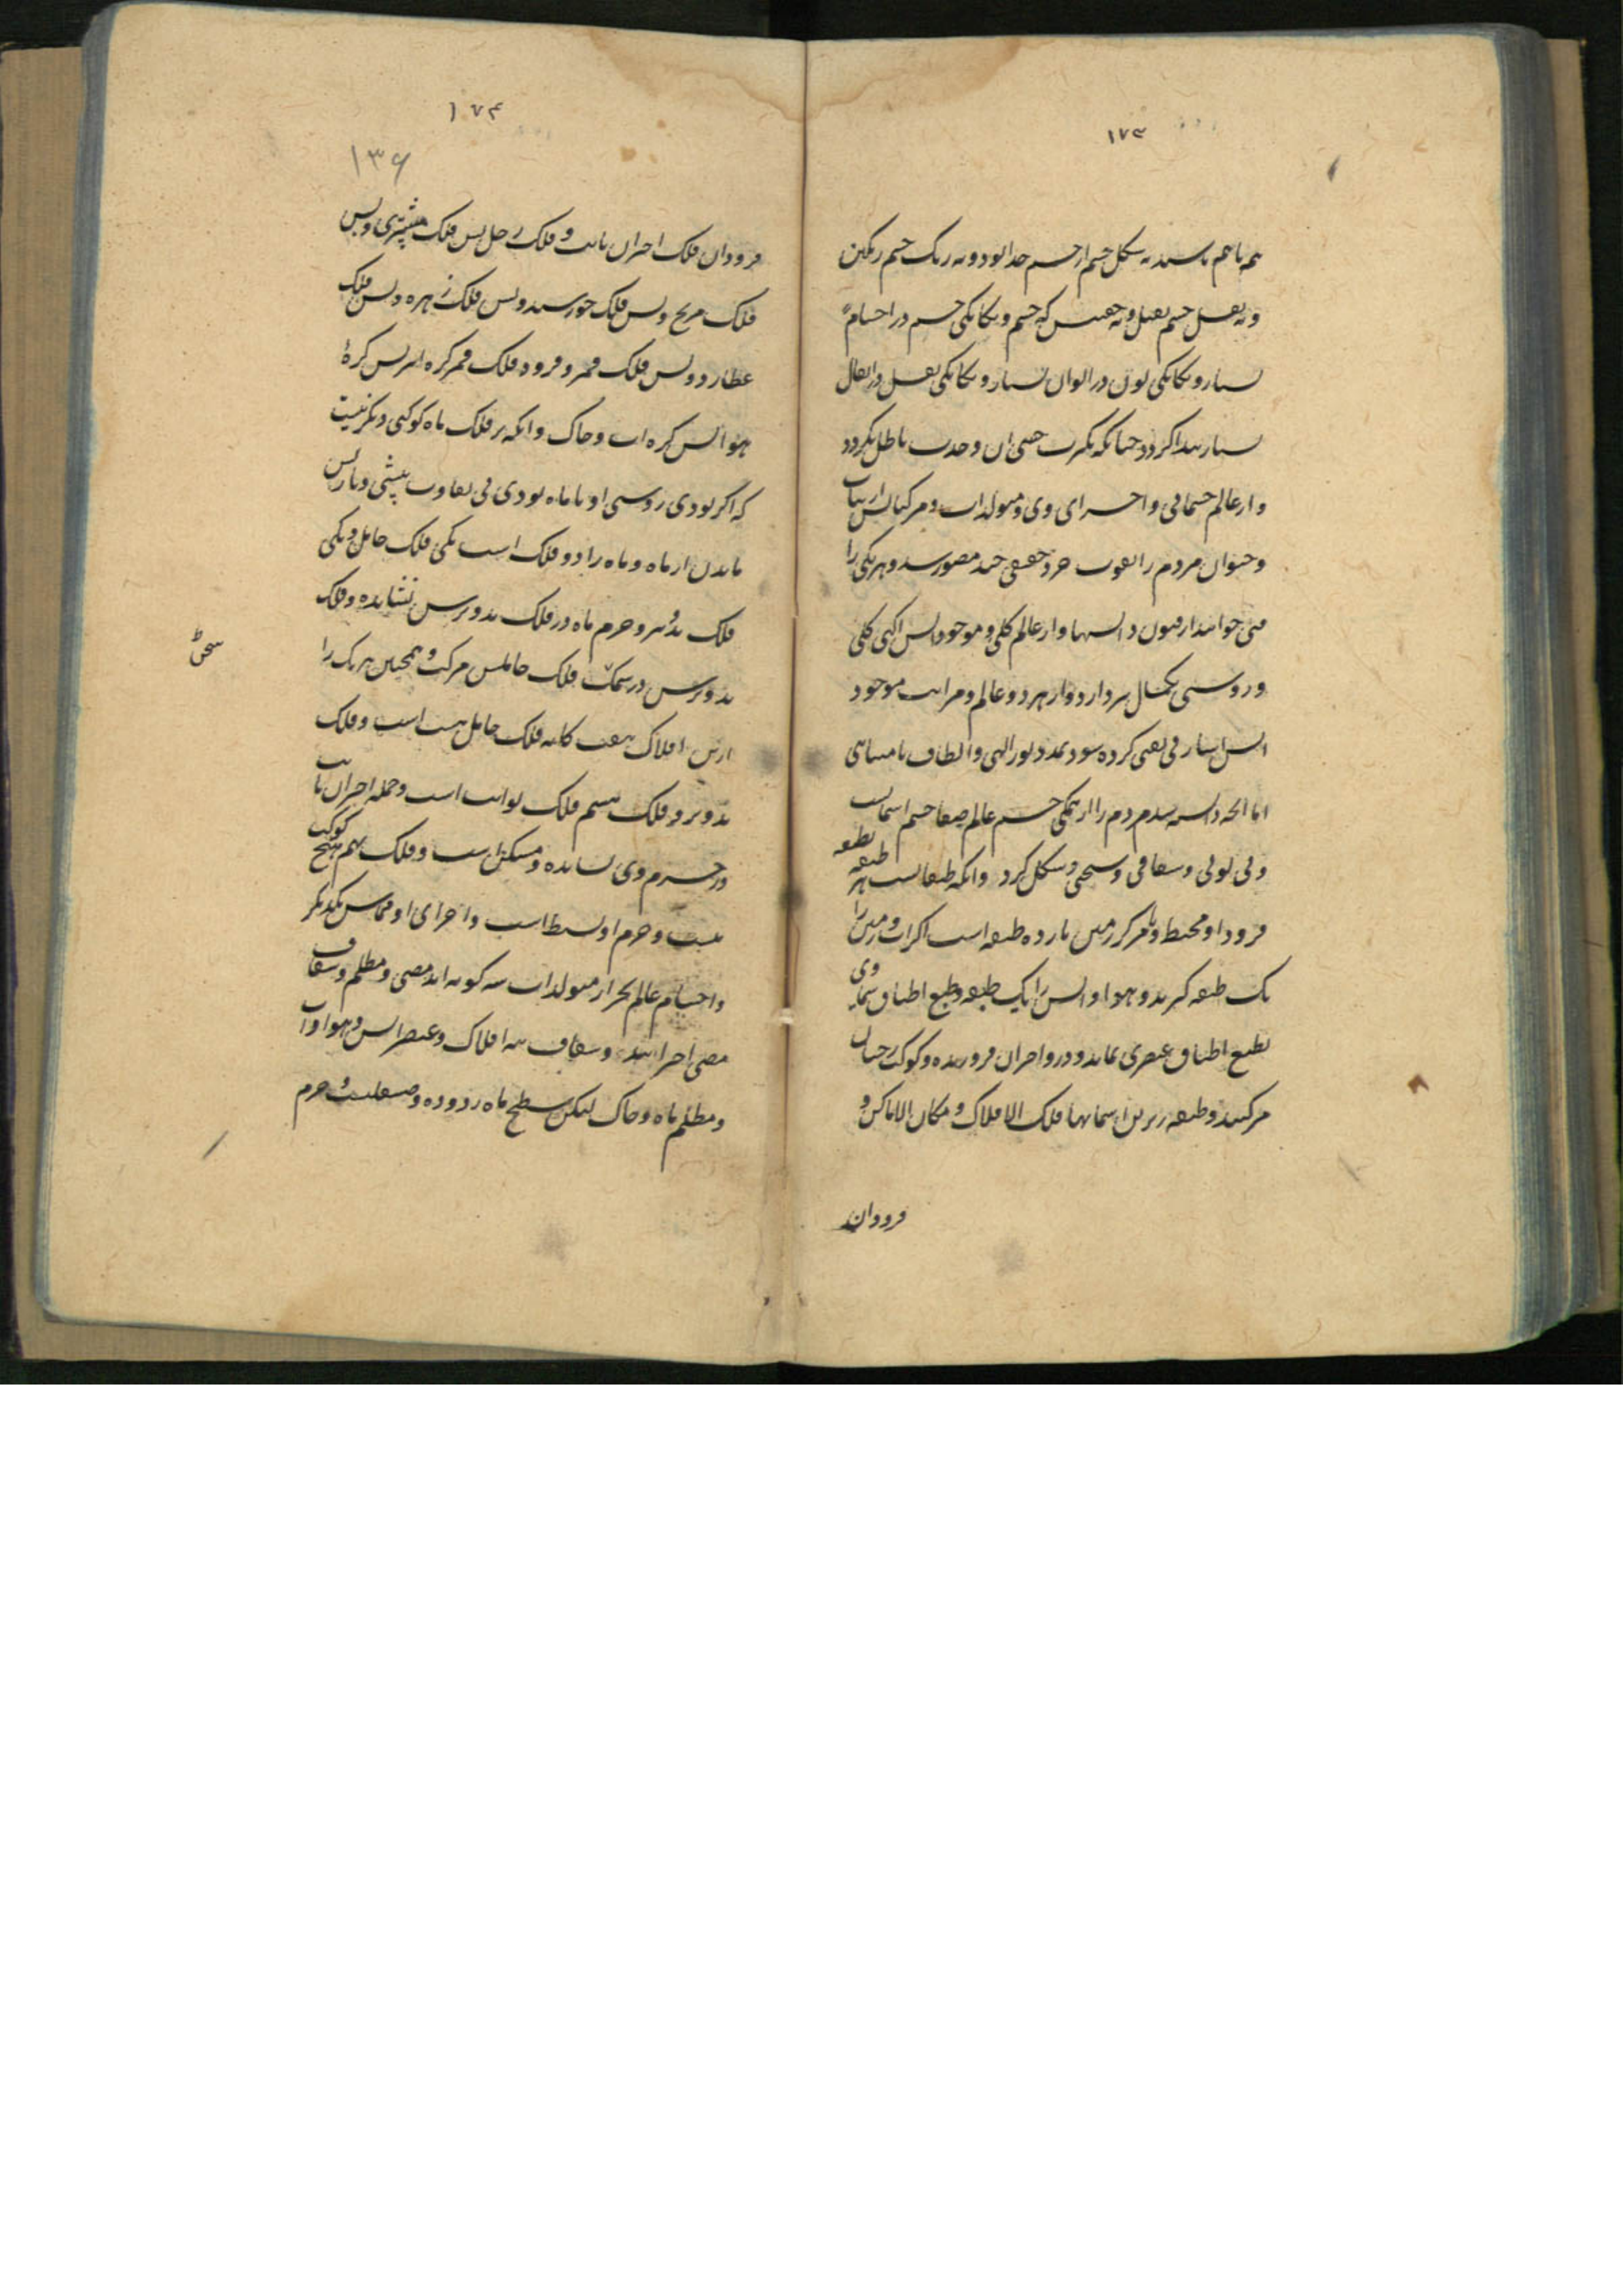 ۱۷۳
هم باهم باشند نه شکل جسم از جسم جدا بود و نه رنگ جسم رنگین
و نه ثقل جسم ثقیل و نه که جسم و یگانگی جسم در اجسام
بسیار و یگانگی لون در الوان بسیار و یگانگی ثقل در اثقال
بسیار پیدا گردد چنانکه بکثرت حسی آن وحدت باطل نگردد
و از عالم جسمانی و اجزای وی و متولدات و مرکباتش از نبات
و حیوان مردم را بقوت خرد جند مصور شد و هر یکی را
فنی خوانند از فنون دانشها و از عالم کلی و موجوداتش آگهی کلی
و روشنی و از هر دو عالم و مراتب موجود
کرده شود بمدد نور الهی و الطاف نامتناهی
اما آنچه دانسته شد مردم را از همگی جسم عالم صفا جسم آسمانست
و بی لونی و شفافی و و شکل گرد و آنکه طبقاتست هر طبقه بطبقه
فرود او محیط و تا مرکز زمین یازده طبقه است اگر آب و زمین را
یک طبقه گیرند و هوا و آتش را یک طبقه و طبع اطباق سماوی
بطبع اطباق عنصری نماند و درو اختران فروزنده و کوکب رخشان
مرکبند و طبقه زبرین آسمانها فلک الافلاک و مکان الاماکن و
فرود آن
۱۷۴
۱۳۶
فرود آن فلک اختران ثابت و فلک زحل پس فلک مشتری و پس
فلک مریخ و پس فلک خورشید و پس فلک زهره و پس فلک
عطارد و پس فلک قمر و فرود فلک قمر کره اثیر پس کرهٔ
هوا پس کره آب و خاک و آنکه بر فلک ماه کوکبی دیگر نیست
که اگر بودی روشنی او با ماه بودی بی تفاوت پیشی و باز پس
ماندن از ماه و ماه را دو فلک است یکی فلک حامل و یکی
فلک تدویر و جرم ماه در فلک تدویرش نشانده و فلک
تدویرش در سمک فلک حاملش مرکب و همچنین هر یک را
ازین افلاک هفت گانه فلک حامل هست است و فلک
تدویر و فلک هشتم فلک ثوابت است و جمله اختران ثابت
در جرم وی نشانده و متمکن است و فلک نهم هیچ کوکب
نیست و جرم او بسیط است و اجزای او مماس یکدیگر
و اجسام عالم بجز از متولدات سه گونه اند مضی و مظلم و شفاف
مضی اخترانند و شفاف نه افلاک و عنصر آتش و هوا و آب
و مظلم ماه و خاک لیکن سطح ماه زدوده و صقلیست و جرم